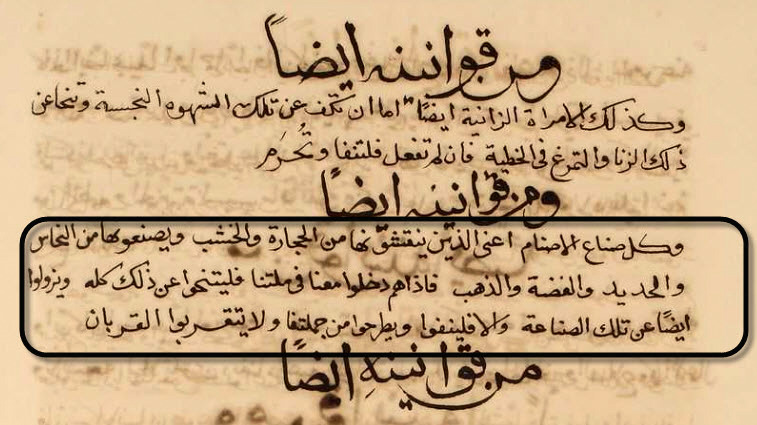 ومن قوانينه ايضاً
وكذلك الامراة الزانية ايضاً اما ان تكف عن تلك الشهوه النجسة وتتخا عن
ذلك الزنا والتمرغ فى الخطية فان لم تفعل فلتنفا وتُحْرَم
ومن قوانينه ايضاً
وكل صناع الاصنام اعنى الذين ينقشونها من الحجارة والخشب ويصنعوها من النحاس
والحديد والفضة والذهب فاذا هم دخلوا معنا فى ملتنا فليتنحوا عن ذلك كله ويزولوا
ايضًا عن تلك الصناعة والا فلينفوا ويطرحوا من جملتنا ولا يتقربوا القربان
من قوانينه ايضاً